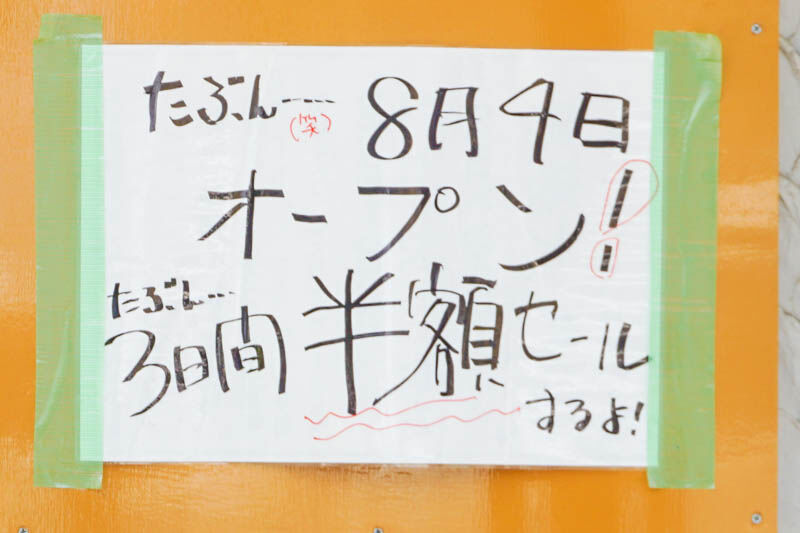 たぶん……(笑) 8月4日
オープン!
たぶん……
3日間 半額セール
するよ!